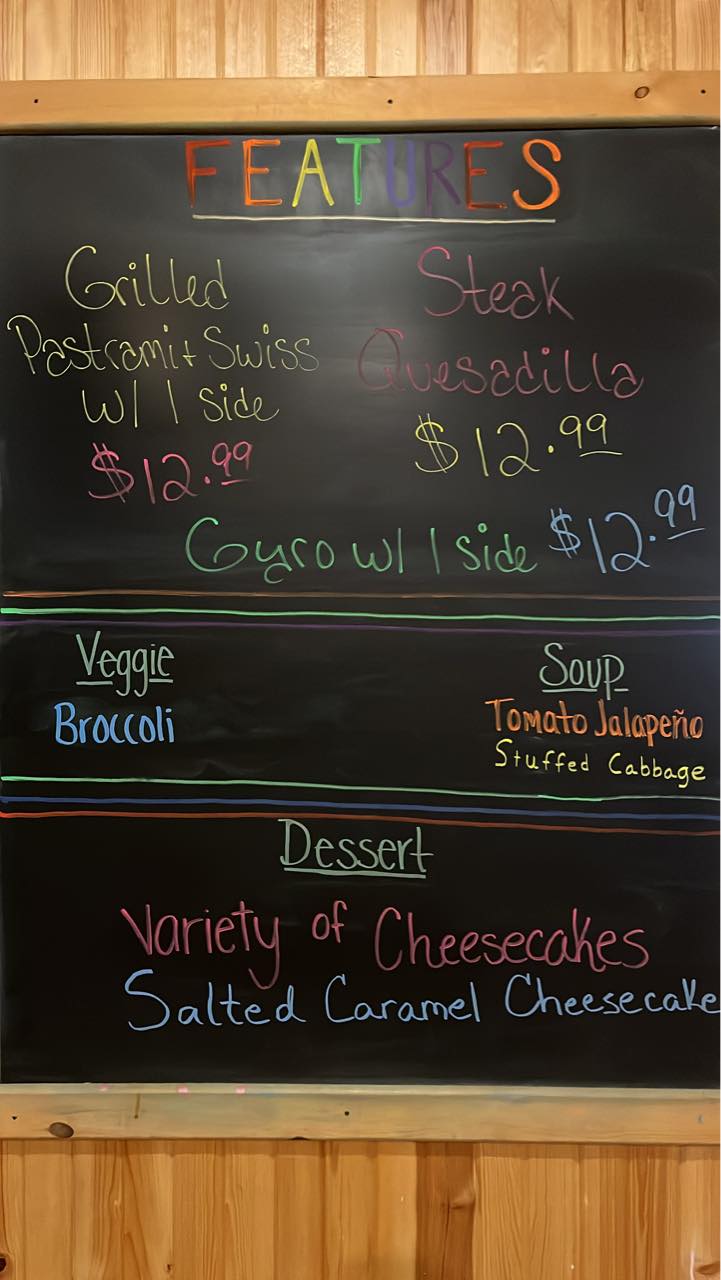 FEATURES
Grilled
Pastrami + Swiss
w/ 1 side
$12.99
Steak
Quesadilla
$12.99
Gyro w/ 1 side $12.99
Veggie
Broccoli
Soup
Tomato Jalapeño
Stuffed Cabbage
Dessert
Variety of Cheesecakes
Salted Caramel Cheesecake